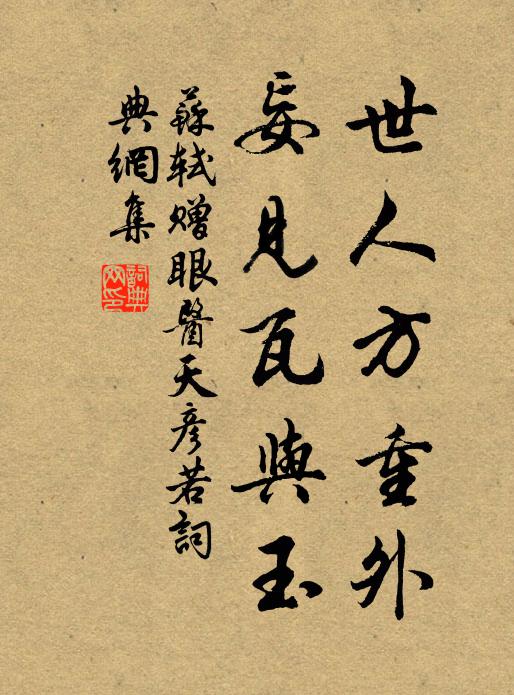 世人方重外
妄見瓦與玉
蘇軾贈眼醫天彥若詞
典網集
詞典
网印